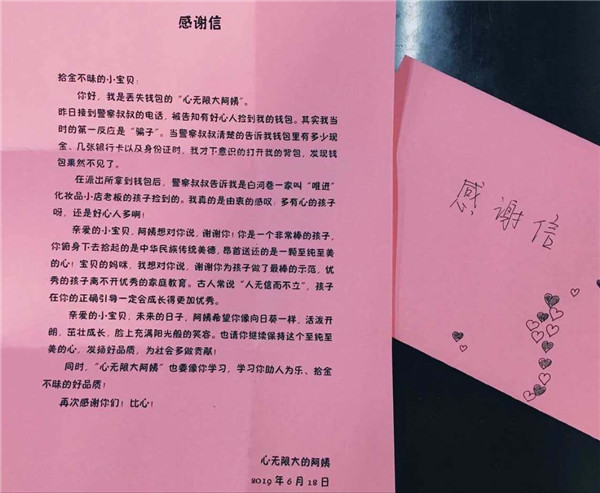 感谢信
拾金不昧的小宝贝：
你好，我是丢失钱包的“心无限大阿姨”。
昨日接到警察叔叔的电话，被告知有好心人捡到我的钱包。其实我当
时的第一反应是“骗子”。当警察叔叔清楚的告诉我钱包里有多少现
金、几张银行卡以及身份证时，我才下意识的打开我的背包，发现钱
包果然不见了。
在派出所拿到钱包后，警察叔叔告诉我是白河巷一家叫“唯进”
化妆品小店老板的孩子捡到的。我真的是由衷的感叹：多有心的孩子
呀，还是好心人多啊！
亲爱的小宝贝，阿姨想对你说，谢谢你！你是一个非常棒的孩子，
你俯身下去拾起的是中华民族传统美德，昂首送还的是一颗至纯至美
的心！宝贝的妈咪，我想对你说，谢谢你为孩子做了最棒的示范，优
秀的孩子离不开优秀的家庭教育。古人常说“人无信而不立”，孩子
在你的正确引导一定会成长得更加优秀。
亲爱的小宝贝，未来的日子，阿姨希望你像向日葵一样，活泼开
朗，茁壮成长，脸上充满阳光般的笑容。也请你继续保持这个至纯至
美的心，发扬好品质，为社会多做贡献！
同时，“心无限大阿姨”也要像你学习，学习你助人为乐、拾金
不昧的好品质！
再次感谢你们！比心！
心无限大的阿姨
2019年6月18日
感谢信